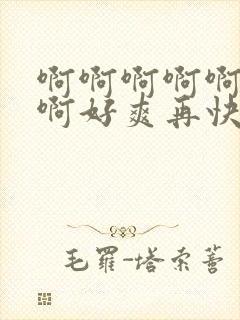 啊啊啊啊啊
啊好爽再快
毛羅-塔索薈